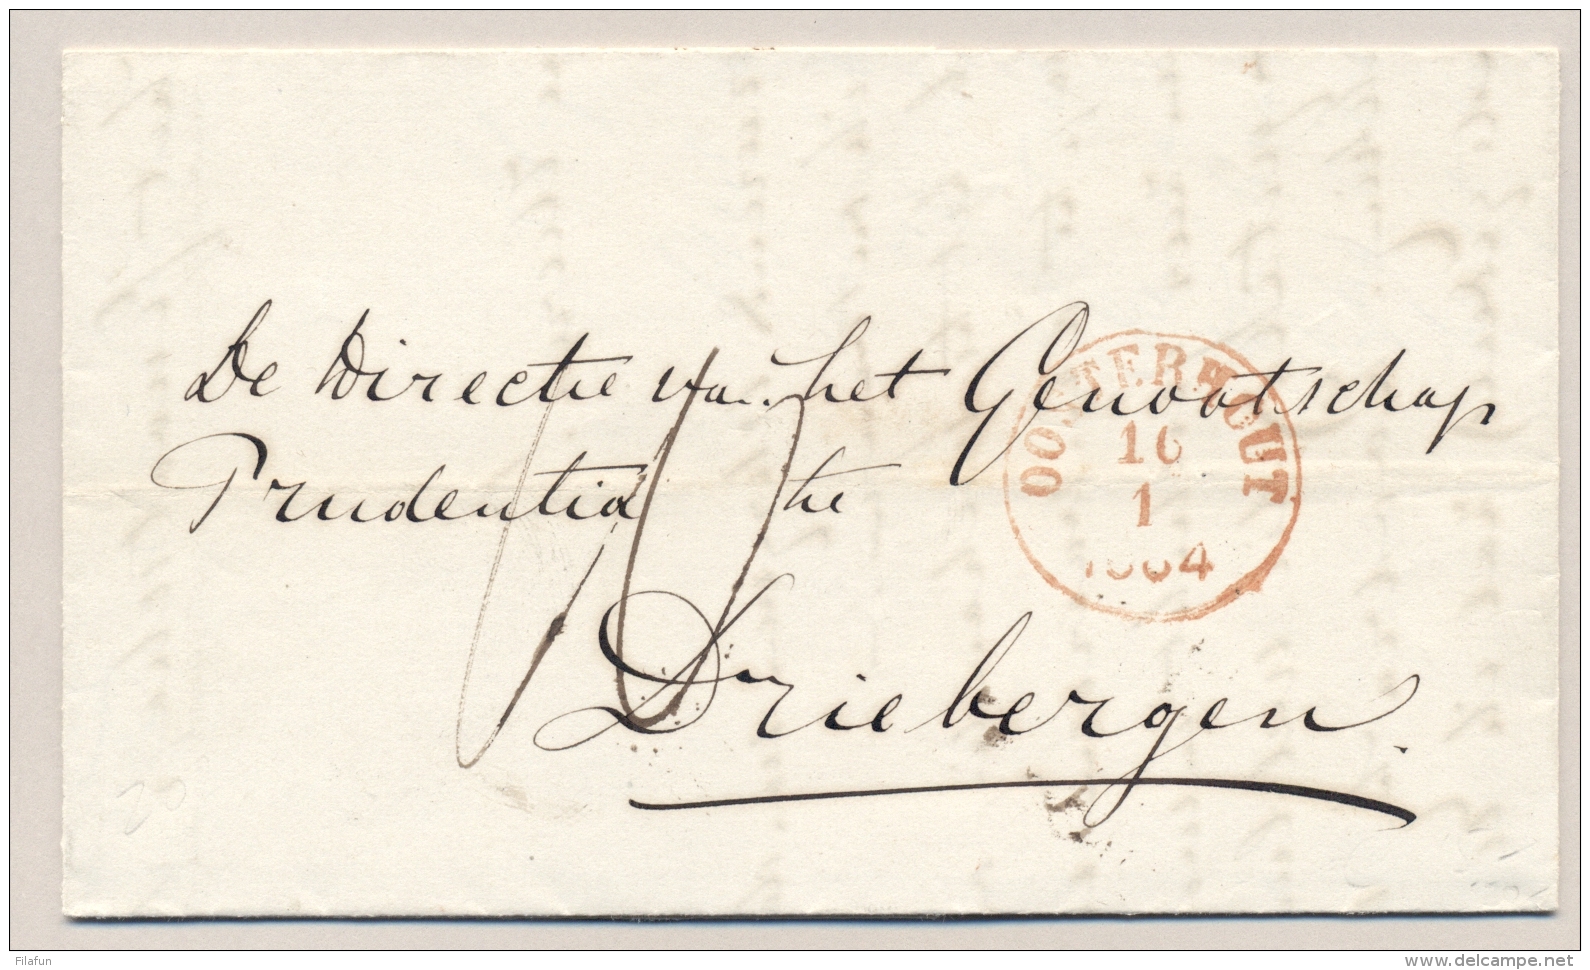 De Directie van het Genootschap
Prudentia te
Driebergen.
10
OOSTERHOUT
16
1
1864
Filafun
www.delcampe.net